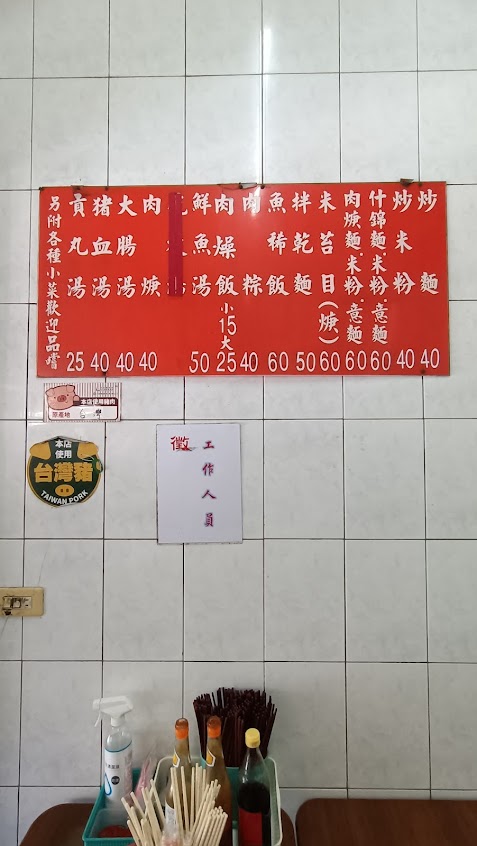 炒麵 40
炒米粉 40
什錦麵·米粉·意麵 60
肉焿麵·米粉·意麵 60
米苔目(焿) 60
拌乾麵 50
魚稀飯 60
肉粽 40
肉燥飯 小15大25
鮮魚湯 50
湯
肉焿 40
大腸湯 40
豬血湯 40
貢丸湯 25
另附各種小菜歡迎品嚐
本店使用豬肉
原產地 台灣
本店
使用
台灣豬
TAIWAN PORK
徵
工作人員